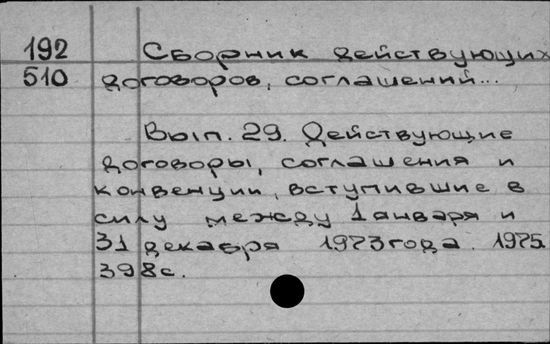 192 Сборник действующих
510 договоров, соглашений...
Вып. 29. Действующие
договоры, соглашения и
конвенции, вступившие в
силу между 1 января и
31 декабря 1973 года. 1975.
398 с.